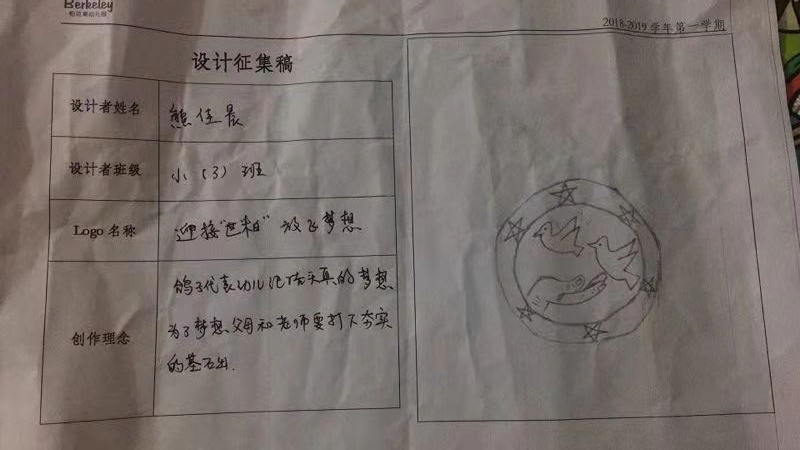 Berkeley
2018-2019 学年第一学期
设计征集稿
设计者姓名
熊佳晨
设计者班级
小（3）班
Logo 名称
迎接“世柏” 放飞梦想
创作理念
鸽子代表幼儿纯真的梦想
为了梦想父母和老师要打下夯实
的基石出.